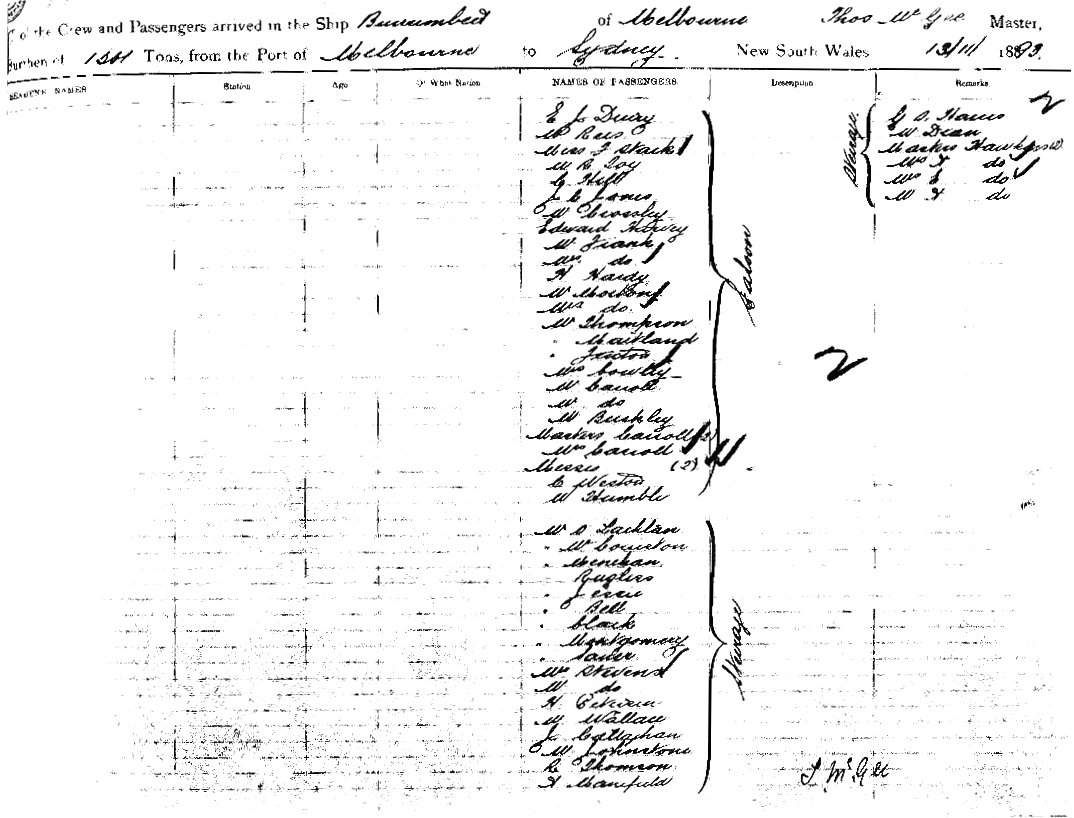 of the Crew and Passengers arrived in the Ship Burrumbeet of Melbourne Thos McGee Master,
Burthen of Tons, from the Port of Melbourne to Sydney New South Wales 13/11/ 1893.
SEAMENS NAMES Station Age Of What Nation NAMES OF PASSENGERS Description Remarks
2
E J Drury
M Rees
Miss F Stack
M R Joy
G Hill
J C Jones
W Crossley
Edward Harvey
Mr Frank
Mrs do
H Hardy
Mr Morton
Mrs do
Mr Thompson
" Maitland
" Fenton
Mrs Cowtly
Mr Carroll
Mr do
Mr Buckley
Masters Carroll (2)
Mrs Carroll
Misses (2)
C Weston
W Humble
Saloon
2
Mr D Lachlan
" W Courston
" Menehan
" Jessie
" Bell
" Black
" Montgomery
Mrs Stevens
M do
M Wallace
J Callaghan
W Johnstone
R Thomson
H Manifield
Steerage
Steerage
G D Harris
W Dean
Masters Hawkins (2)
Mrs H do
Mrs E do
Mr H do
T McGee